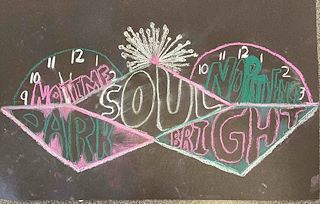 11 12 1
10 2
9 NO TIME
SOUL
10 1 2 3
NO
DARK
BRIGHT